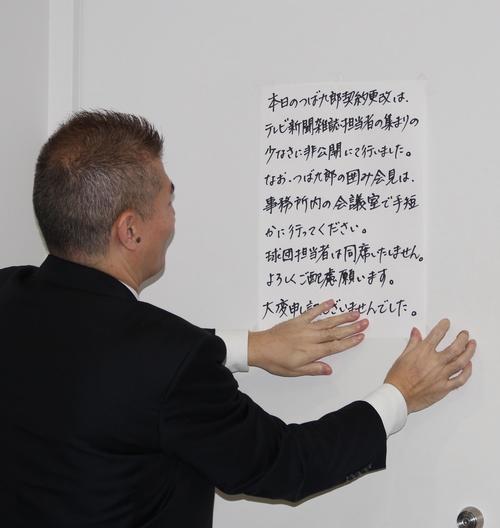 本日のつば九郎契約更改は、
テレビ新聞雑誌担当者の集まりの
少なさに非公開にて行いました。
なお、つば九郎の囲み会見は、
事務所内の会議室で手短
かに行ってください。
球団担当者は同席いたしません。
よろしくご配慮願います。
大変申し訳ございませんでした。